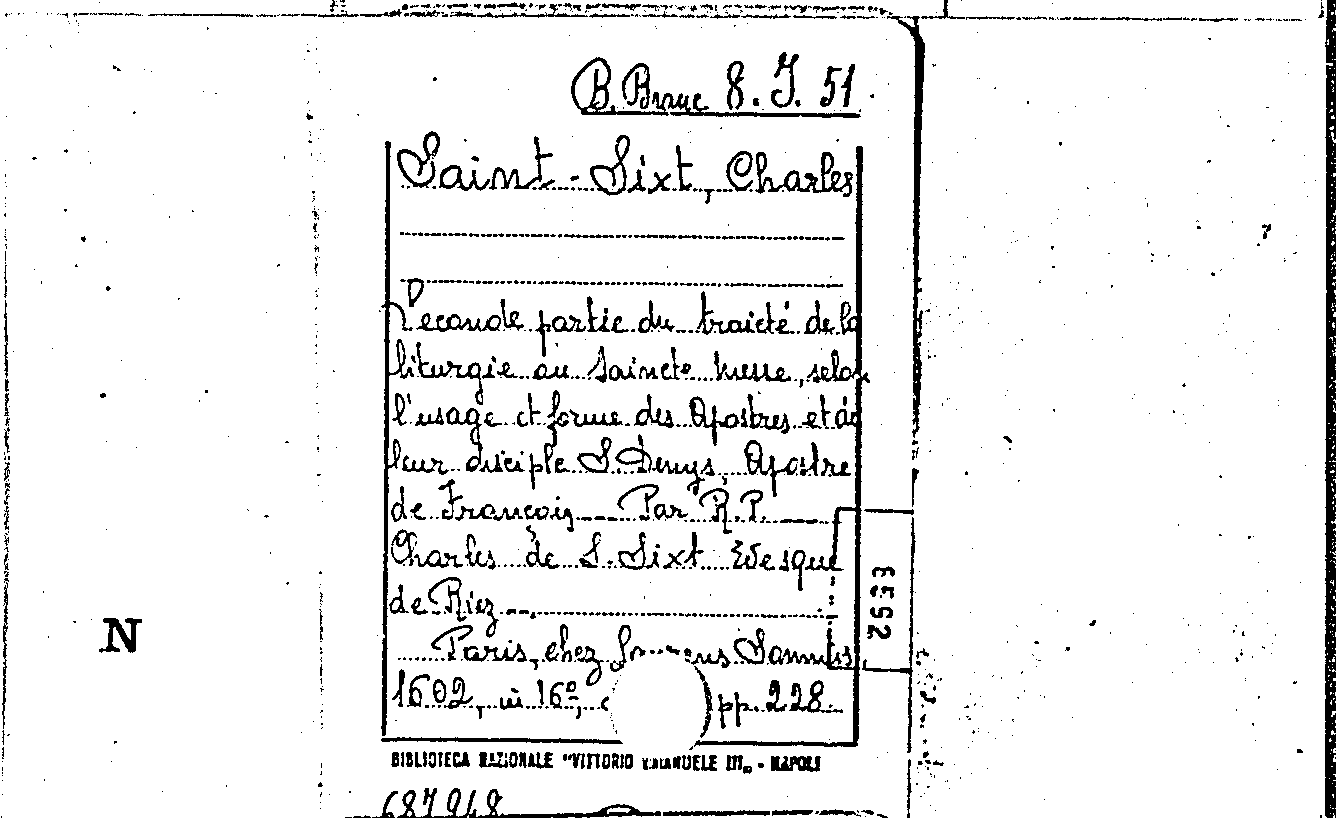 B. Branc 8. J. 51
Saint-Sixt, Charles
Seconde partie du traicté de la
liturgie ou saincte messe, selon
l'usage et forme des Apostres et de
leur disciple S. Denys, Apostre
de François --- Par R.P. ---
Charles de S. Sixt Evesque
de Riez --.
Paris, chez
1602, in 16º, pp. 228.
BIBLIOTECA NAZIONALE "VITTORIO EMANUELE III„ - NAPOLI
N
2553